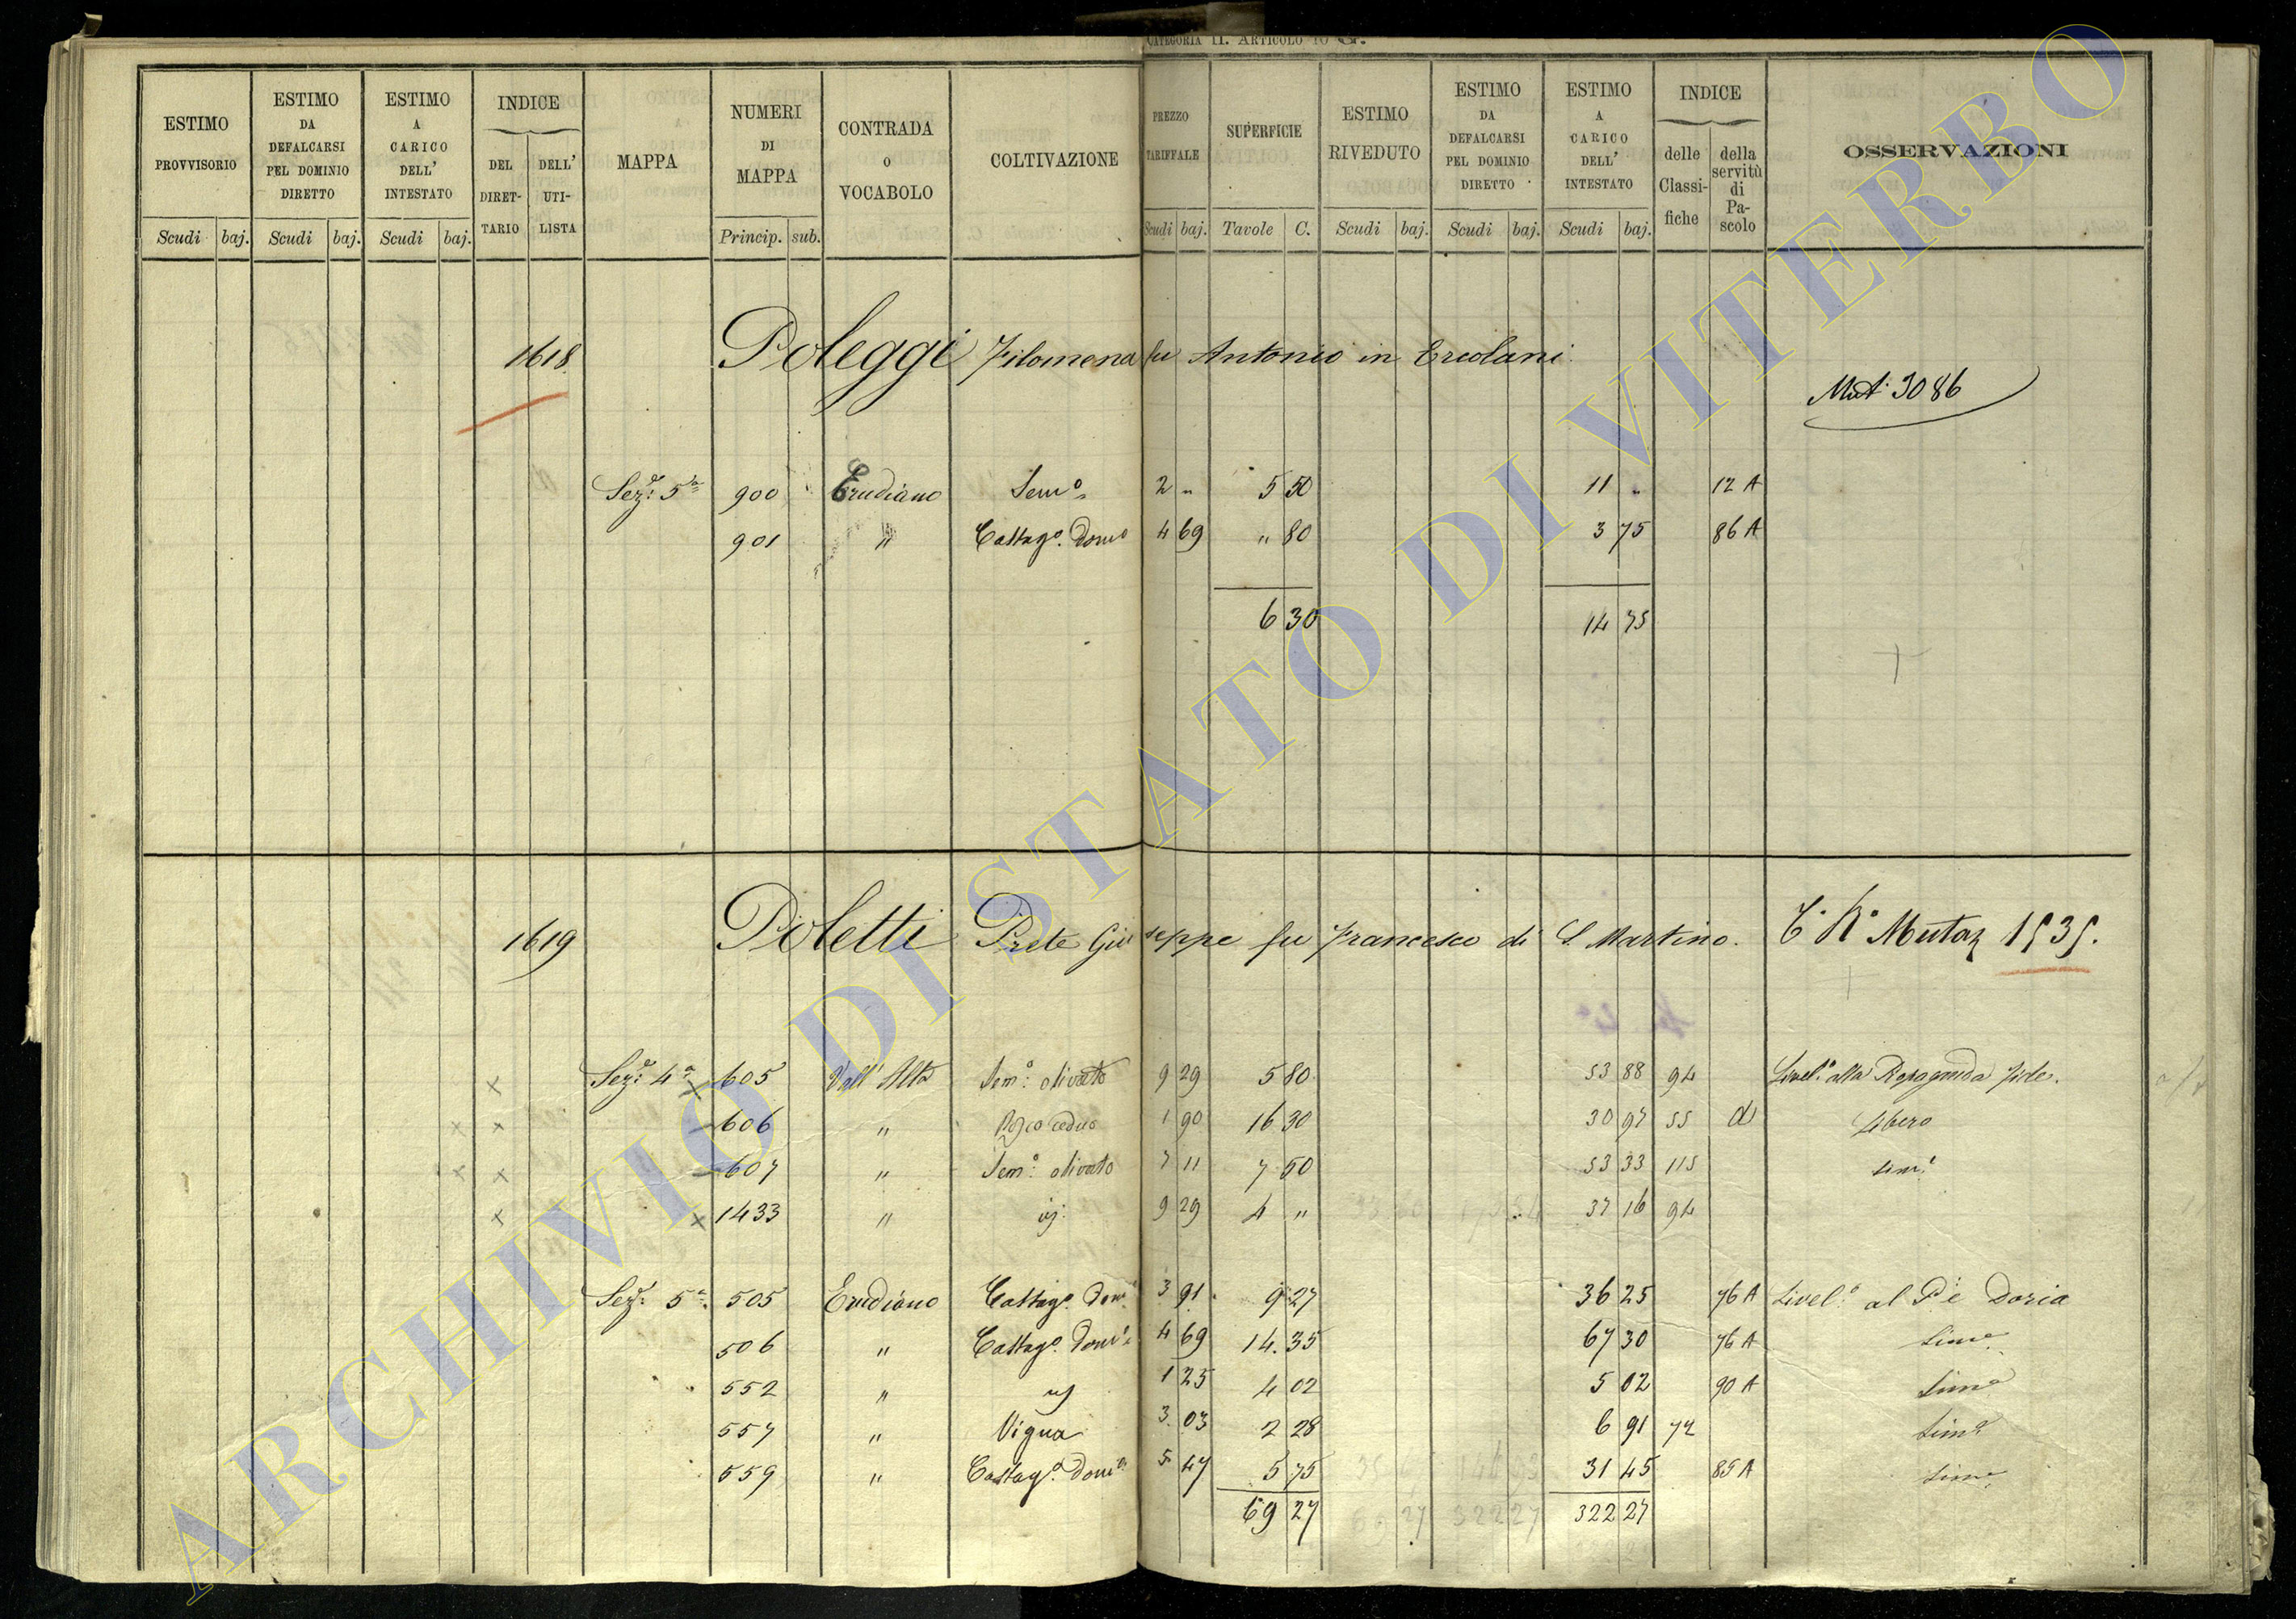 CATEGORIA II. ARTICOLO 10 G.
ESTIMO PROVVISORIO
ESTIMO DA DEFALCARSI PEL DOMINIO DIRETTO
ESTIMO A CARICO DELL' INTESTATO
INDICE
DEL DIRET- TARIO
DELL' UTI- LISTA
MAPPA
NUMERI DI MAPPA
CONTRADA O VOCABOLO
COLTIVAZIONE
PREZZO TARIFFALE
SUPERFICIE
ESTIMO RIVEDUTO
ESTIMO DA DEFALCARSI PEL DOMINIO DIRETTO
ESTIMO A CARICO DELL' INTESTATO
INDICE
delle Classi- fiche
della servitù di Pa- scolo
OSSERVAZIONI
Scudi baj. Scudi baj. Scudi baj. Princip. sub. Scudi baj. Tavole C. Scudi baj. Scudi baj. Scudi baj.
1618 Poleggi Filomena fu Antonio in Ercolani
Mut. 3086
Sez: 5a 900 Erudiano Semo 2 " 5 50 11 " 12 A
901 " Castago. Domo 4 69 " 80 3 75 86 A
6 30 14 75
1619 Poletti Prete Giuseppe fu Francesco di S. Martino. Mutaz 1535.
Seze: 4a 605 Vall' Alta Semo: olivato 9 29 5 80 53 88 94 Livelo alla Propaganda Fide.
606 " Bosco ceduo 1 90 16 30 30 97 55 d Libero
607 " Semo: olivato 7 11 7 50 53 33 115 sim:
1433 " 9 29 4 " 37 16 94
Seze: 5a. 505 Erudiano Castago. Domo 3 91 9 27 36 25 76 A Livelo: al Pe Doria
506 " Castago. Domo 4 69 14 35 67 30 76 A Sime
552 " 1 25 4 02 5 02 90 A Sime
557 " Vigna 3 03 2 28 6 91 72 Sime
559 " Castago. Domo 5 47 5 75 31 45 85 A Sime
69 27 69 27 322 27 322 27
ARCHIVIO DI STATO DI VITERBO